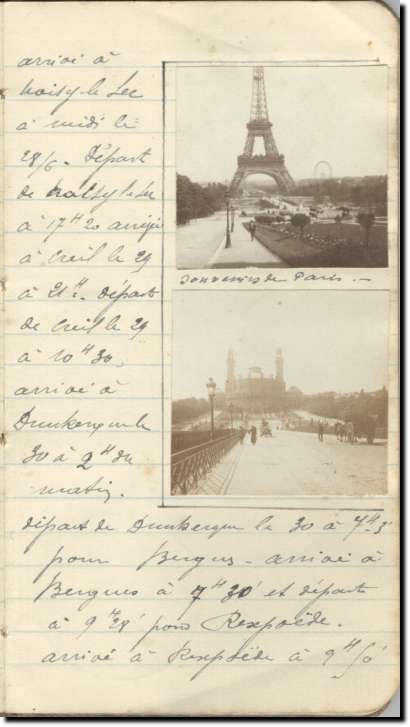 arrivé à
Noisy-le-Sec
à midi le
28/6. Départ
de Noisy le Sec
à 17H20 arrivé
à Creil le 29
à 21H. départ
de Creil le 29
à 10H30,
arrivé à
Dunkerque le
30 à 2H du
matin.
Souvenirs de Paris. -
départ de Dunkerque le 30 à 7H5'
pour Bergues - arrivé à
Bergues à 7H30' et départ
à 9H28' pour Rexpoëde.
arrivé à Rexpoëde à 9H50'